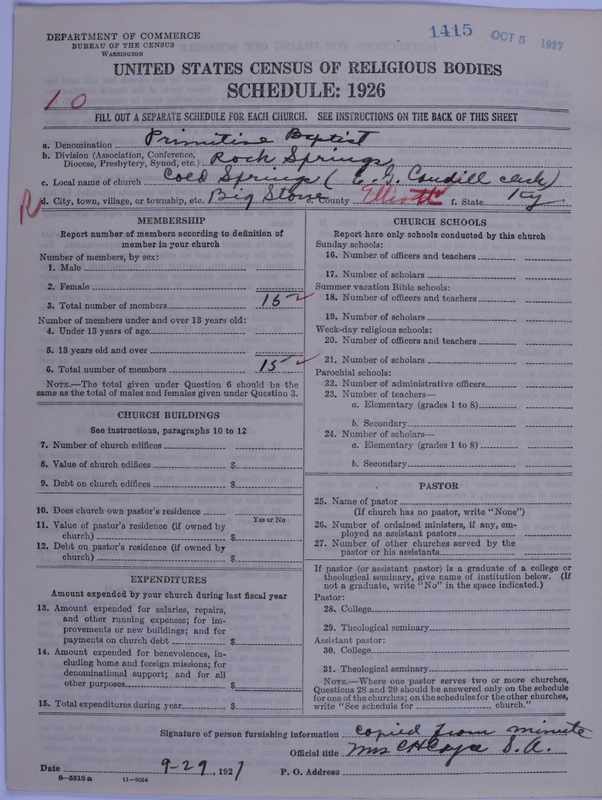 DEPARTMENT OF COMMERCE
BUREAU OF THE CENSUS
WASHINGTON
1415 OCT 5 1927
UNITED STATES CENSUS OF RELIGIOUS BODIES
SCHEDULE: 1926
10
FILL OUT A SEPARATE SCHEDULE FOR EACH CHURCH. SEE INSTRUCTIONS ON THE BACK OF THIS SHEET
a. Denomination Primitive Baptist
b. Division (Association, Conference, Diocese, Presbytery, Synod, etc.) Rock Springs
c. Local name of church Cold Springs ( Caudill clerk)
d. City, town, village, or township, etc. Big Stone e. County Elliott f. State Ky
R
MEMBERSHIP
Report number of members according to definition of
member in your church
Number of members, by sex:
1. Male
2. Female
3. Total number of members 15
Number of members under and over 13 years old:
4. Under 13 years of age
5. 13 years old and over
6. Total number of members 15
NOTE.—The total given under Question 6 should be
same as the total of males and females given under Question 3.
CHURCH BUILDINGS
See instructions, paragraphs 10 to 12
7. Number of church edifices
8. Value of church edifices $
9. Debt on church edifices $
10. Does church own pastor's residence
Yes or No
11. Value of pastor's residence (if owned by
church) $
12. Debt on pastor's residence (if owned by
church) $
EXPENDITURES
Amount expended by your church during last fiscal year
13. Amount expended for salaries, repairs,
and other running expenses; for im-
provements or new buildings; and for
payments on church debt $
14. Amount expended for benevolences, in-
cluding home and foreign missions; for
denominational support; and for all
other purposes $
15. Total expenditures during year $
CHURCH SCHOOLS
Report here only schools conducted by this church
Sunday schools:
16. Number of officers and teachers
17. Number of scholars
Summer vacation Bible schools:
18. Number of officers and teachers
19. Number of scholars
Week-day religious schools:
20. Number of officers and teachers
21. Number of scholars
Parochial schools:
22. Number of administrative officers
23. Number of teachers—
a. Elementary (grades 1 to 8)
b. Secondary
24. Number of scholars—
a. Elementary (grades 1 to 8)
b. Secondary
PASTOR
25. Name of pastor
(If church has no pastor, write "None")
26. Number of ordained ministers, if any, em-
ployed as assistant pastors
27. Number of other churches served by the
pastor or his assistants
If pastor (or assistant pastor) is a graduate of a college or
theological seminary, give name of institution below. (If
not a graduate, write "No" in the space indicated.)
Pastor:
28. College
29. Theological seminary
Assistant pastor:
30. College
31. Theological seminary
NOTE.—Where one pastor serves two or more churches,
Questions 28 and 29 should be answered only on the schedule
for one of the churches; on the schedules for the other churches,
write "See schedule for church."
Signature of person furnishing information copied from minute
Official title Mrs S. A.
Date 9-29, 1927 P. O. Address
8-5518 a 11-9054